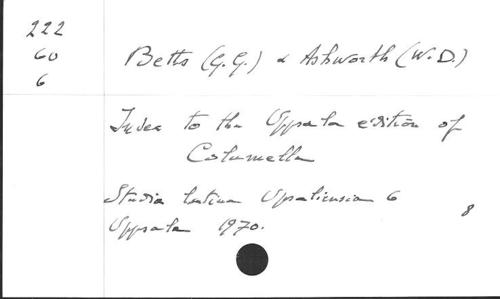 222
60
6
Betts (G.G.) & Ashworth (W.D.)
Index to the Uppsala edition of
Columella
Studia latina Upsaliensia 6
Uppsala 1970.
8